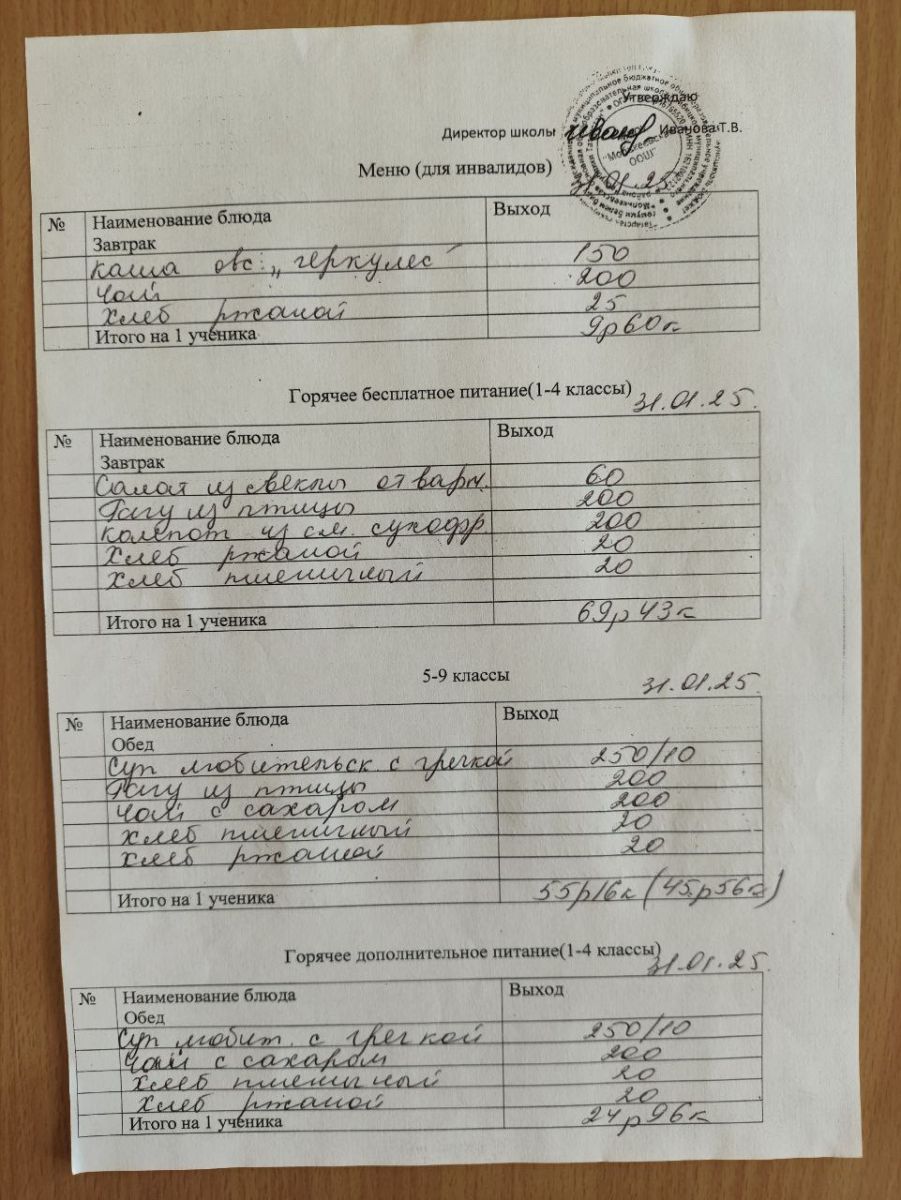 Утверждаю
Директор школы Иванова Т.В.
Меню (для инвалидов) 31.01.25
№ Наименование блюда Выход
Завтрак
каша овс. „геркулес" 150
Чай 200
Хлеб ржаной 25
Итого на 1 ученика 9р60к
Горячее бесплатное питание(1-4 классы) 31.01.25.
№ Наименование блюда Выход
Завтрак
Салат из свеклы отварн. 60
Рагу из птицы 200
компот из см. сухофр. 200
Хлеб ржаной 20
Хлеб пшеничный 20
Итого на 1 ученика 69р43к
5-9 классы 31.01.25.
№ Наименование блюда Выход
Обед
Суп любительск. с гречкой 250/10
Рагу из птицы 200
Чай с сахаром 200
Хлеб пшеничный 20
Хлеб ржаной 20
Итого на 1 ученика 55р16к (45р56к)
Горячее дополнительное питание(1-4 классы) 31.01.25.
№ Наименование блюда Выход
Обед
Суп любит. с гречкой 250/10
Чай с сахаром 200
Хлеб пшеничный 20
Хлеб ржаной 20
Итого на 1 ученика 24р96к